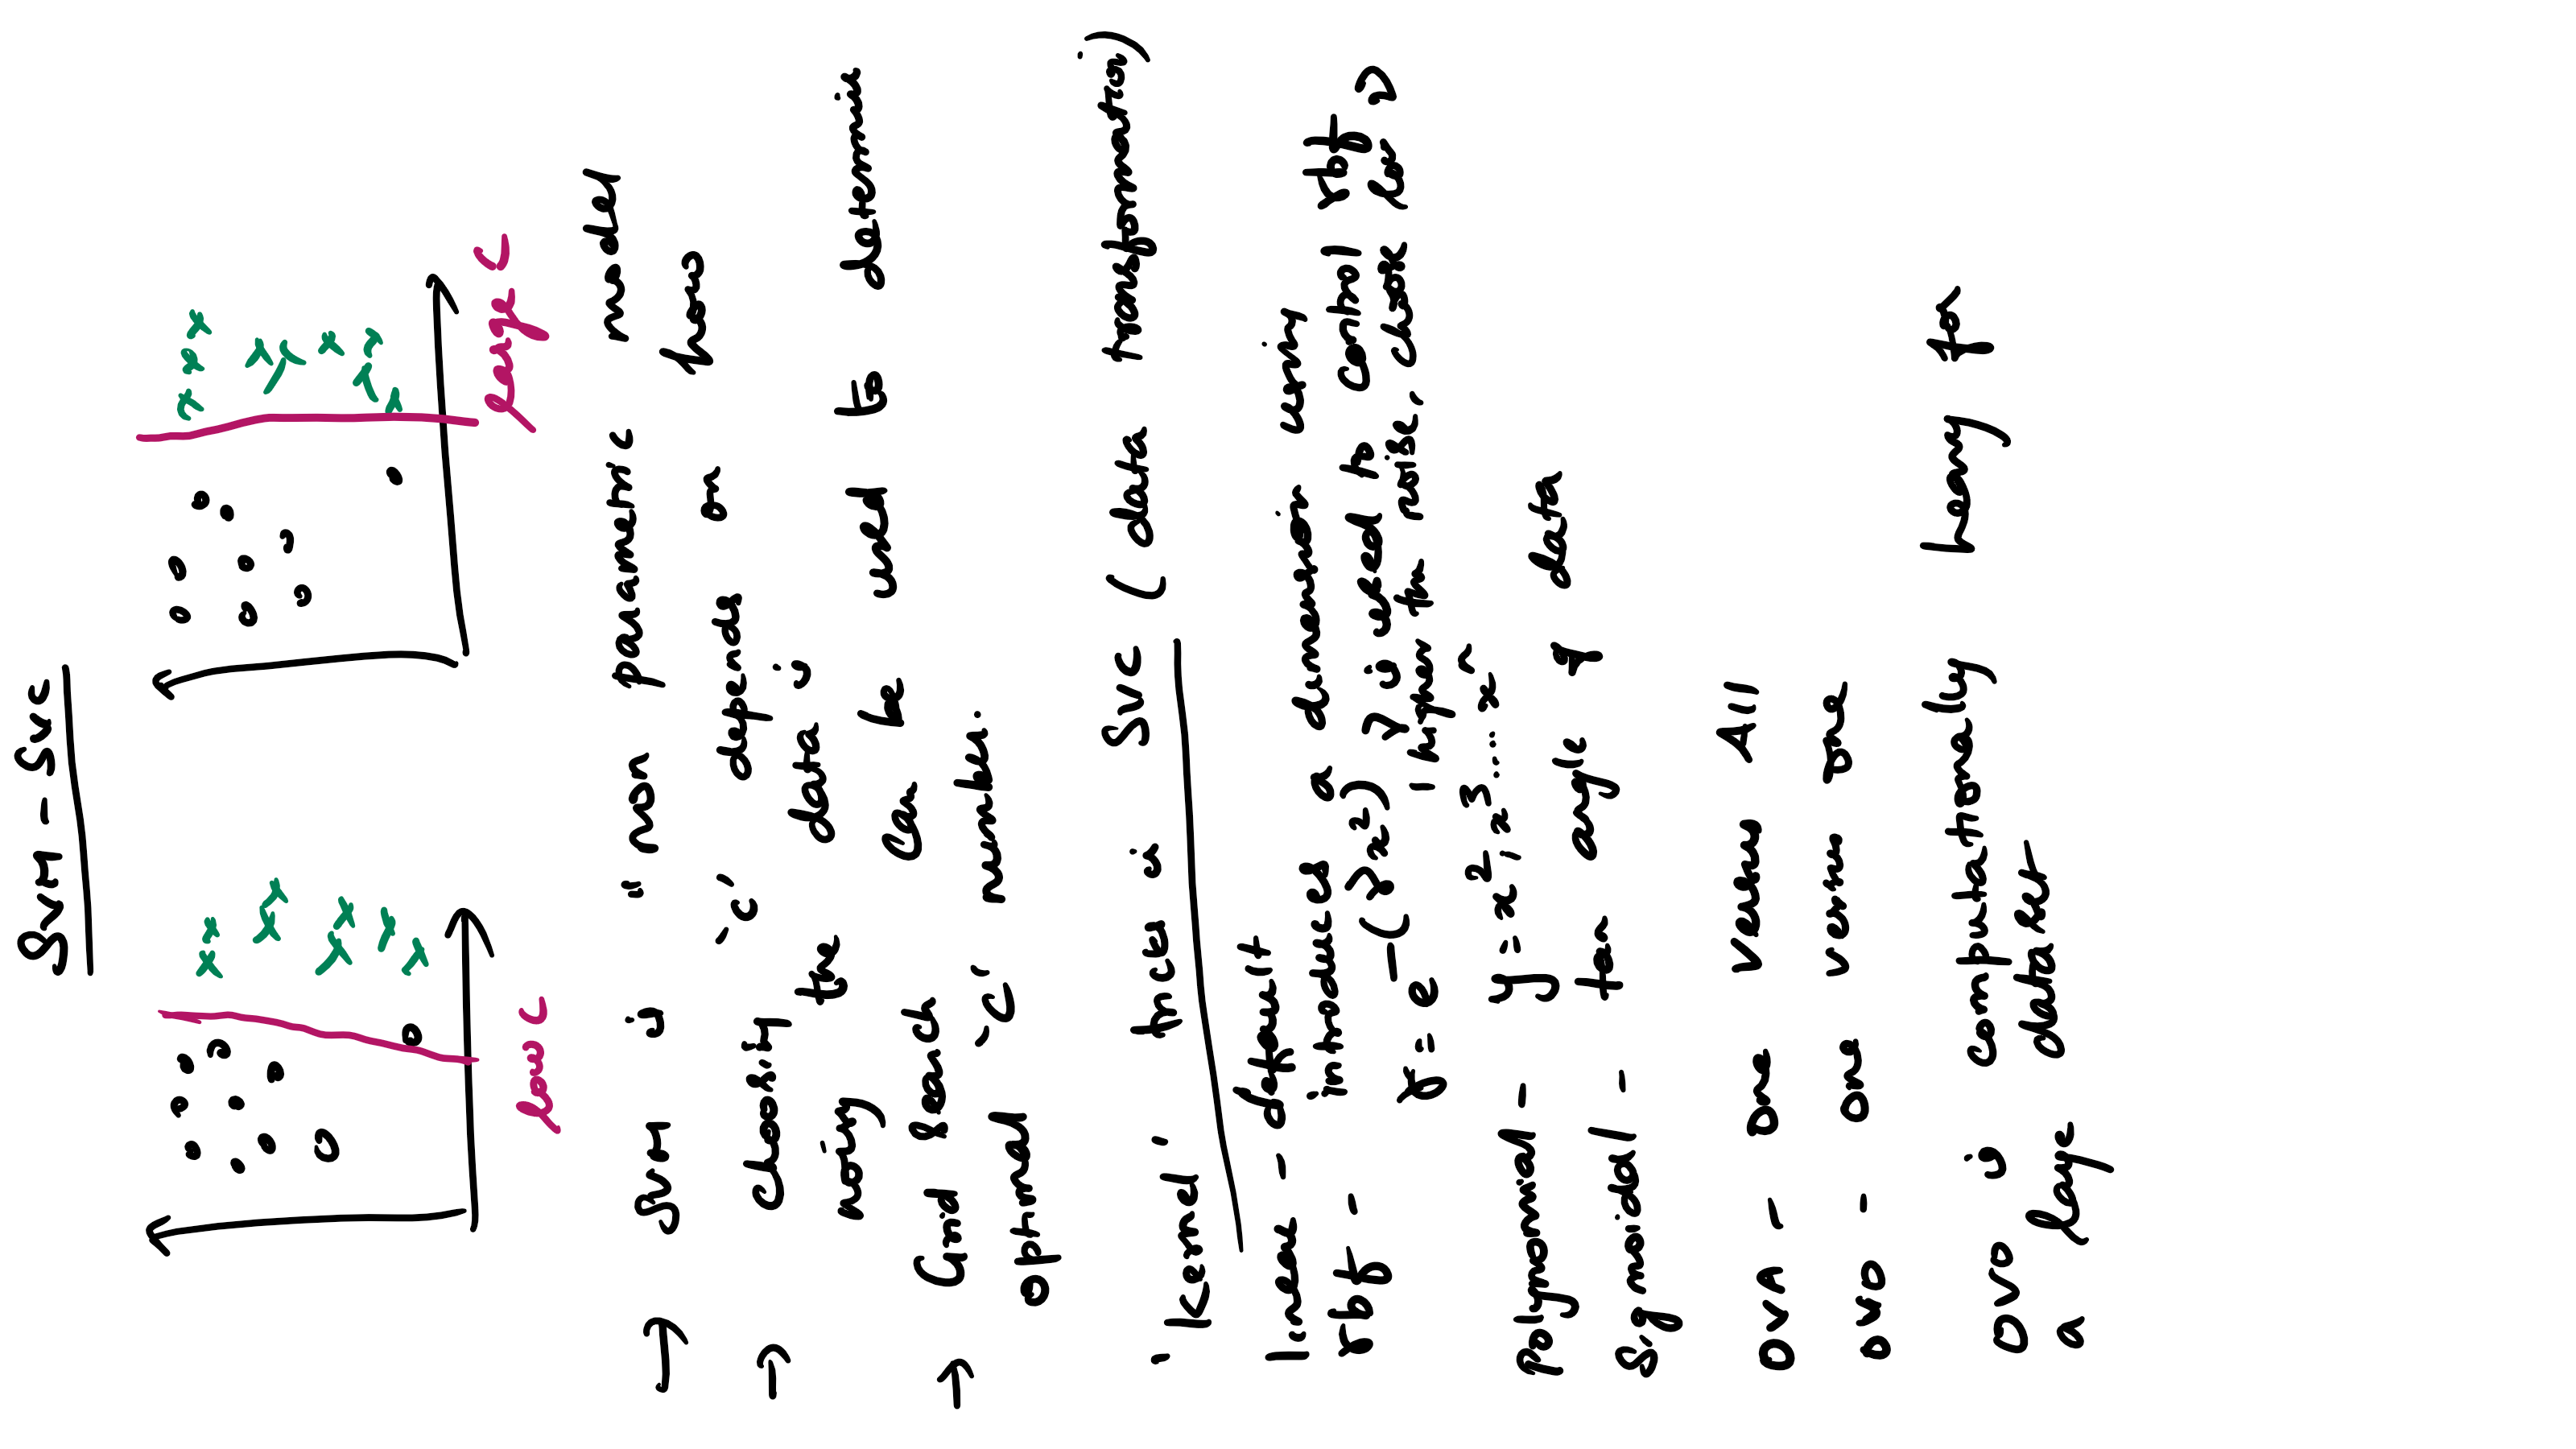 SVM - SVC
low c
large c
→ SVM is "non parametric model
→ choosing 'c' depends on how
noisy the data is
→ Grid Search can be used to determine
optimal 'c' number.
'Kernel' tricks is SVC (data transformation)
linear - default
rbf - introduces a dimension using
y = e^-(γx²) γ is used to control rbf
higher the noise, choose low γ
polynomial - y = x², x³.... xⁿ
Sigmoidal - tan angle of data
OVA - One Versus All
OVO - One versus One
OVO is computationally heavy for
a large dataset